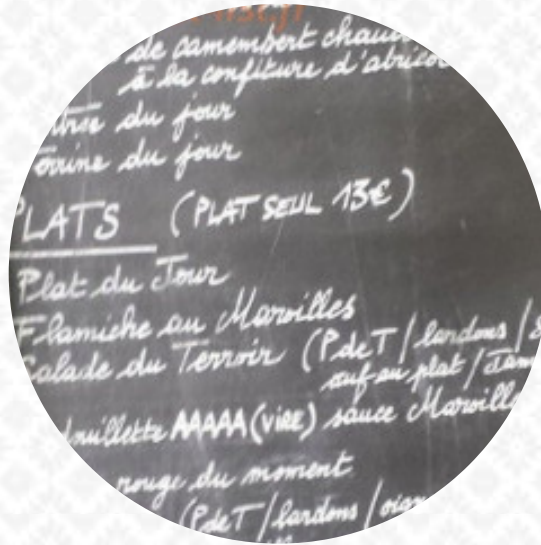 de camembert chaud
à la confiture d'abricot
du jour
Terrine du jour
PLATS (PLAT SEUL 13€)
Plat du Jour
Flamiche au Maroilles
Salade du Terroir (P de T / lardons /
œuf au plat /
AAAAA (VIRE) sauce Maroilles
rouge du moment
(P de T / lardons /